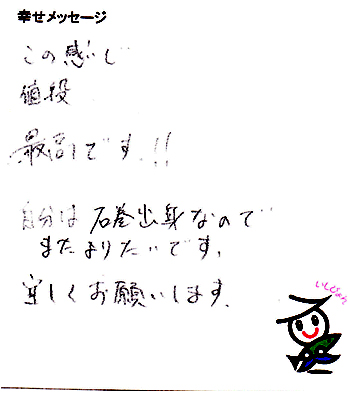 幸せメッセージ
この感じ
値段
最高です!!
自分は石巻出身なので
またよりたいです。
宜しくお願いします。